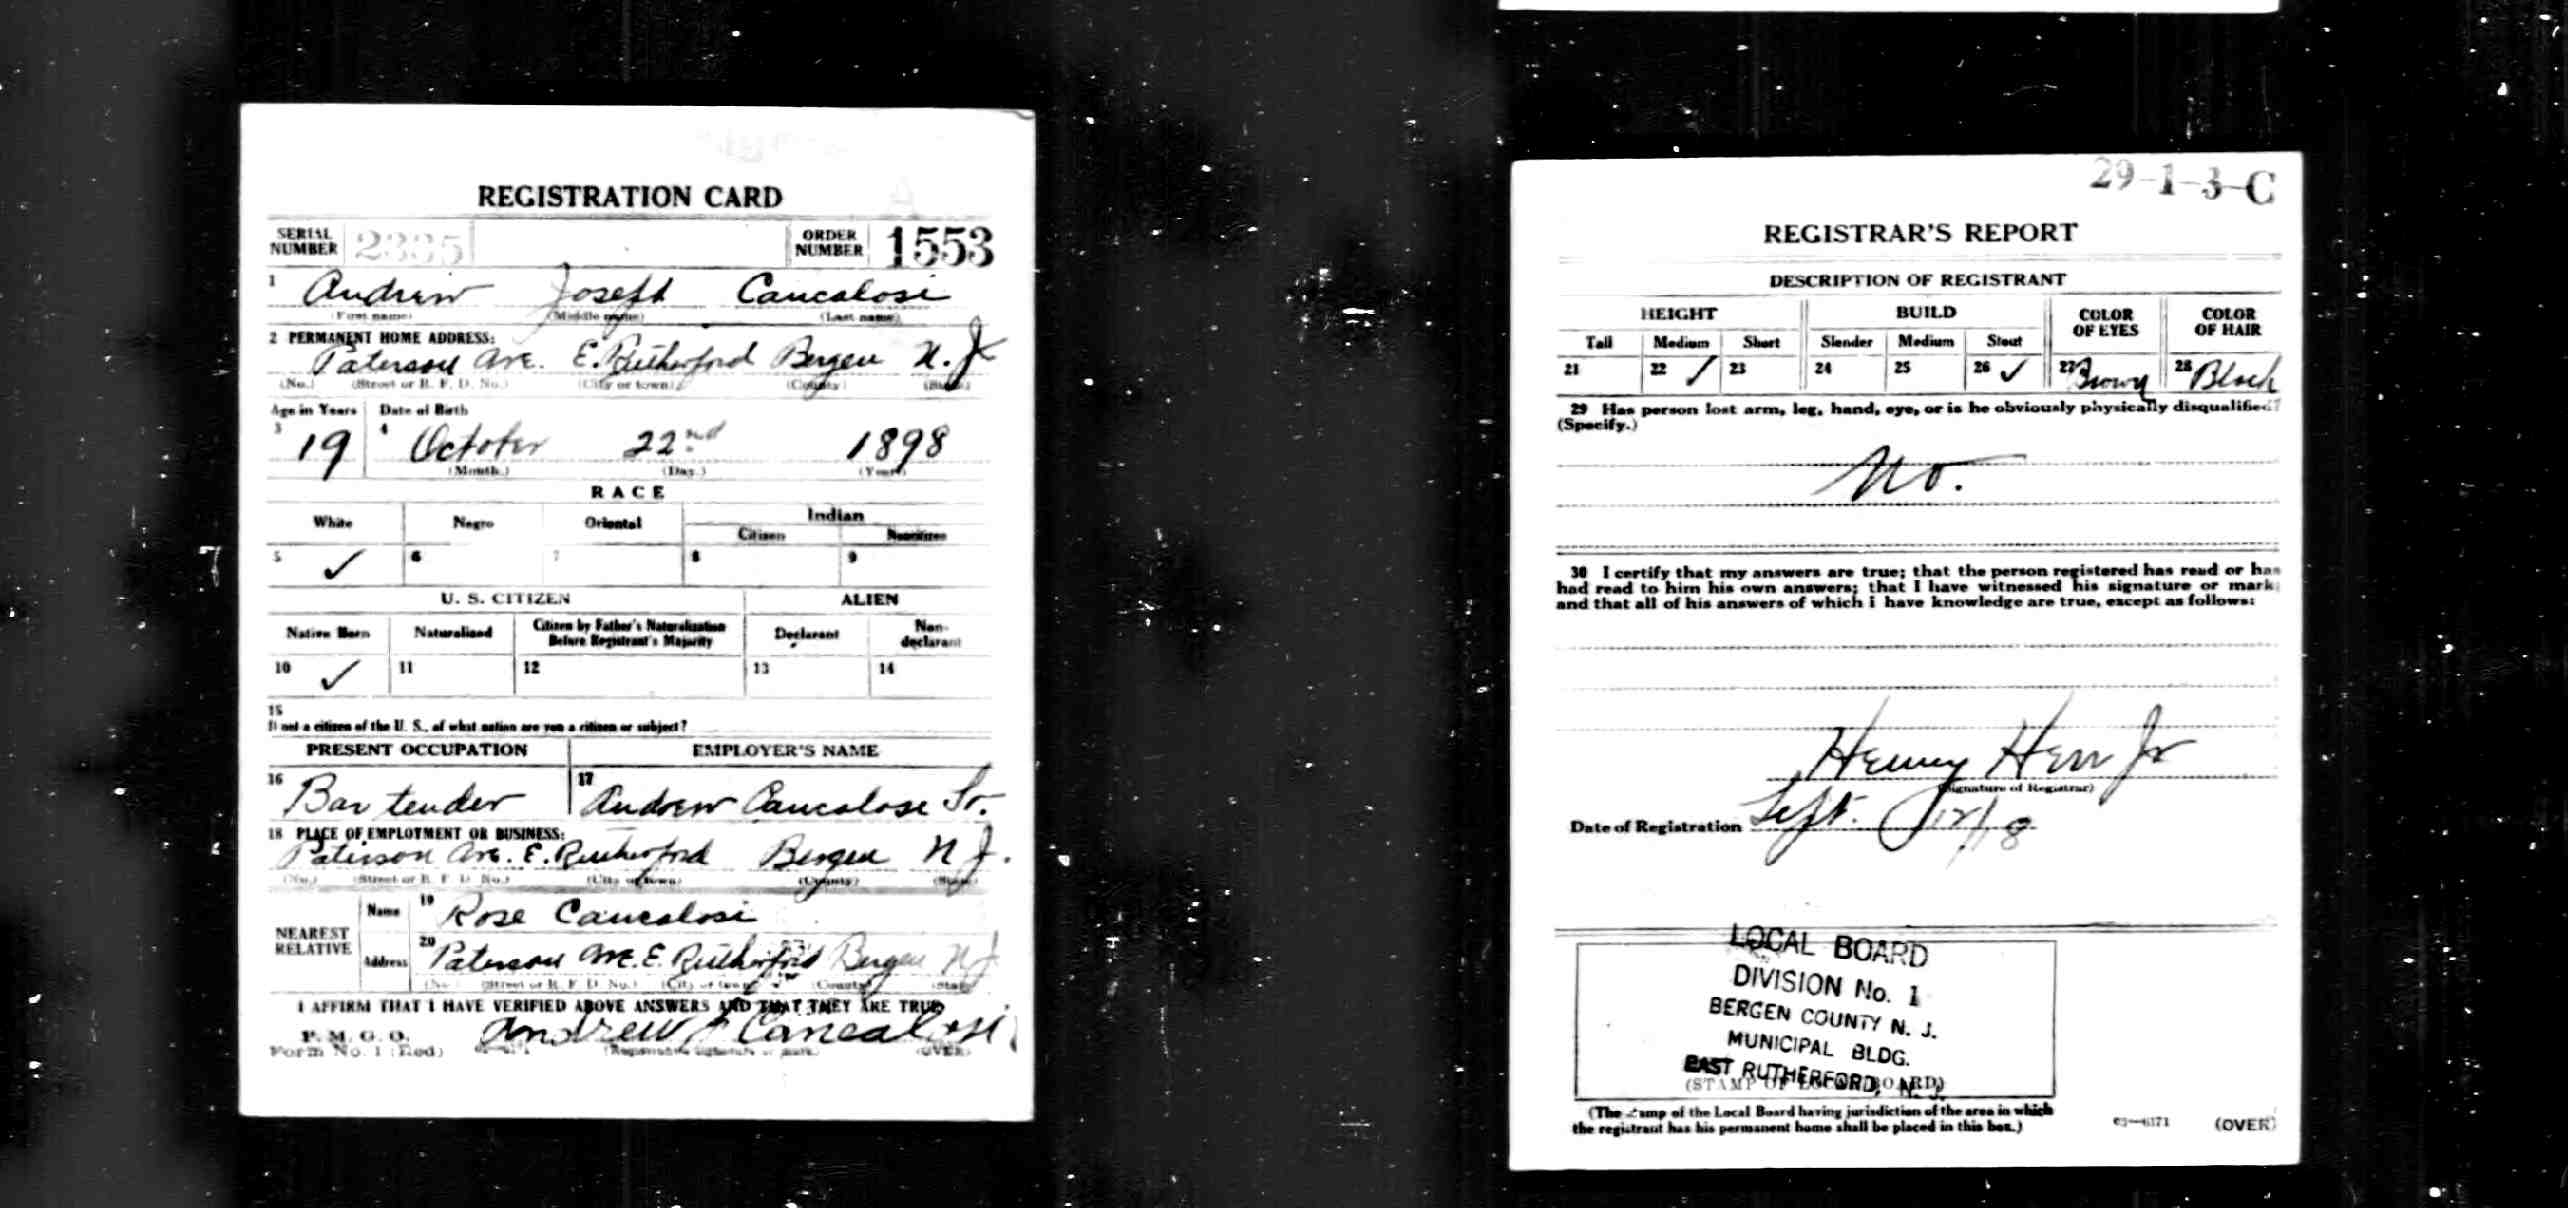 REGISTRATION CARD
SERIAL NUMBER 2335 ORDER NUMBER 1553
1 Andrew Joseph Cancalosi
(First name) (Middle name) (Last name)
2 PERMANENT HOME ADDRESS:
Paterson Ave. E. Rutherford Bergen N. J.
(No.) (Street or R. F. D. No.) (City or town) (County) (State)
Age in Years Date of Birth
3 19 4 October 22nd 1898
(Month.) (Day.) (Year)
RACE
White Negro Oriental Indian
Citizen Noncitizen
5 ✓ 6 7 8 9
U. S. CITIZEN ALIEN
Native Born Naturalized Citizen by Father's Naturalization Before Registrant's Majority Declarant Non-declarant
10 ✓ 11 12 13 14
15
If not a citizen of the U. S., of what nation are you a citizen or subject?
PRESENT OCCUPATION EMPLOYER'S NAME
16 Bar tender 17 Andrew Cancalosi Sr.
18 PLACE OF EMPLOYMENT OR BUSINESS:
Paterson Ave. E. Rutherford Bergen N J.
(No.) (Street or R. F. D. No.) (City or town) (County) (State)
NEAREST RELATIVE
Name 19 Rose Cancalosi
Address 20 Paterson Ave. E. Rutherford Bergen N J
(No.) (Street or R. F. D. No.) (City or town) (County) (State)
I AFFIRM THAT I HAVE VERIFIED ABOVE ANSWERS AND THAT THEY ARE TRUE
P. M. G. O.
Form No. 1 (Red) Andrew J Cancalosi
(Registrant's signature or mark) (OVER)
29-1-3-C
REGISTRAR'S REPORT
DESCRIPTION OF REGISTRANT
HEIGHT BUILD COLOR OF EYES COLOR OF HAIR
Tall Medium Short Slender Medium Stout
21 22 ✓ 23 24 25 26 ✓ 27 Brown 28 Black
29 Has person lost arm, leg, hand, eye, or is he obviously physically disqualified?
(Specify.)
No.
30 I certify that my answers are true; that the person registered has read or has
had read to him his own answers; that I have witnessed his signature or mark;
and that all of his answers of which I have knowledge are true, except as follows:
Henry Herr Jr
(Signature of Registrar)
Date of Registration Sept. 12/18
LOCAL BOARD
DIVISION No. 1
BERGEN COUNTY N. J.
MUNICIPAL BLDG.
EAST RUTHERFORD, N. J.
(STAMP OF LOCAL BOARD)
(The stamp of the Local Board having jurisdiction of the area in which
the registrant has his permanent home shall be placed in this box.)
03—6171 (OVER)